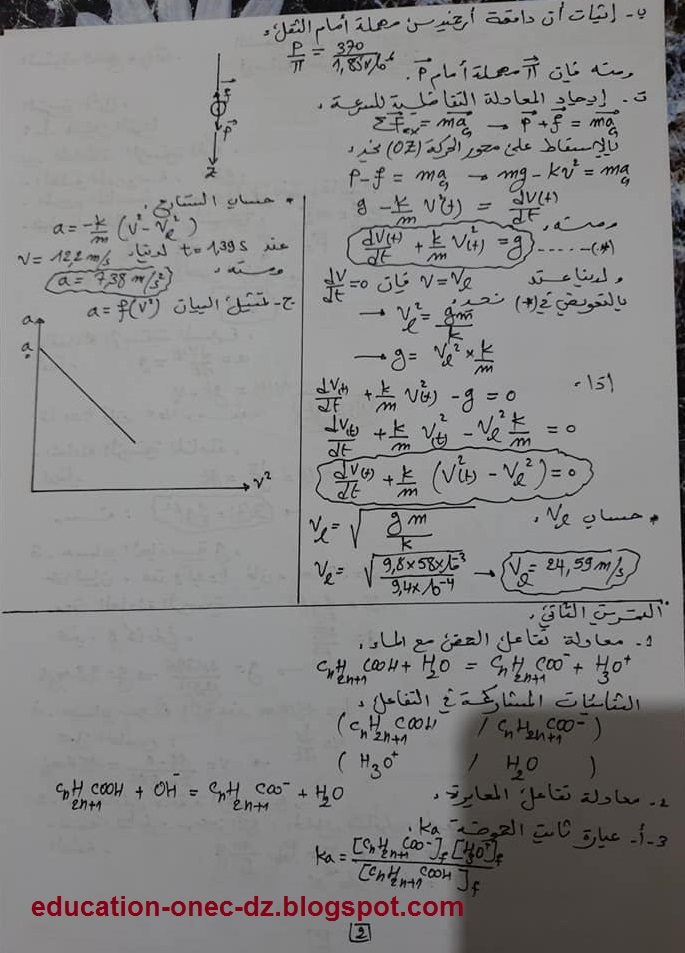 ب- إثبات أن دافعة أرخميدس مهملة أمام الثقل.
P/Π = 370/1,85×10⁻⁶
ومنه فإن Π مهملة أمام P.
ت- إيجاد المعادلة التفاضلية للسرعة.
ΣF_ex = ma_G → P + f = ma_G
بالإسقاط على محور الحركة (OZ) نجد:
P - f = ma_G → mg - kv² = ma_G
g - k/m v²(t) = dv(t)/dt
ومنه:
dv(t)/dt + k/m v²(t) = g ......(*)
ولدينا عند v = v_l فإن dv/dt = 0
بالتعويض في (*) نجد:
→ v_l² = gm/k
→ g = v_l² × k/m
إذا:
dv(t)/dt + k/m v²(t) - g = 0
dv(t)/dt + k/m v²(t) - v_l² k/m = 0
dv(t)/dt + k/m (v²(t) - v_l²) = 0
* حساب v_l.
v_l = √(gm/k)
v_l = √(9,8×58×10⁻³/9,4×10⁻⁴) → v_l = 24,59 m/s
f
P
Z
* حساب التسارع.
a = -k/m (v² - v_l²)
عند t = 1,39 s لدينا v = 12,2 m/s
ومنه: a = 7,38 m/s²
ج- تمثيل البيان a = f(v²)
a
a₀
v²
التمرين الثاني.
1- معادلة تفاعل الحمض مع الماء.
CnH2n+1COOH + H2O = CnH2n+1COO⁻ + H3O⁺
الثنائيات المشاركة في التفاعل.
(CnH2n+1COOH / CnH2n+1COO⁻)
(H3O⁺ / H2O)
2- معادلة تفاعل المعايرة. CnH2n+1COOH + OH⁻ = CnH2n+1COO⁻ + H2O
3-أ- عبارة ثابت الحموضة Ka.
Ka = [CnH2n+1COO⁻]f [H3O⁺]f / [CnH2n+1COOH]f
education-onec-dz.blogspot.com
2